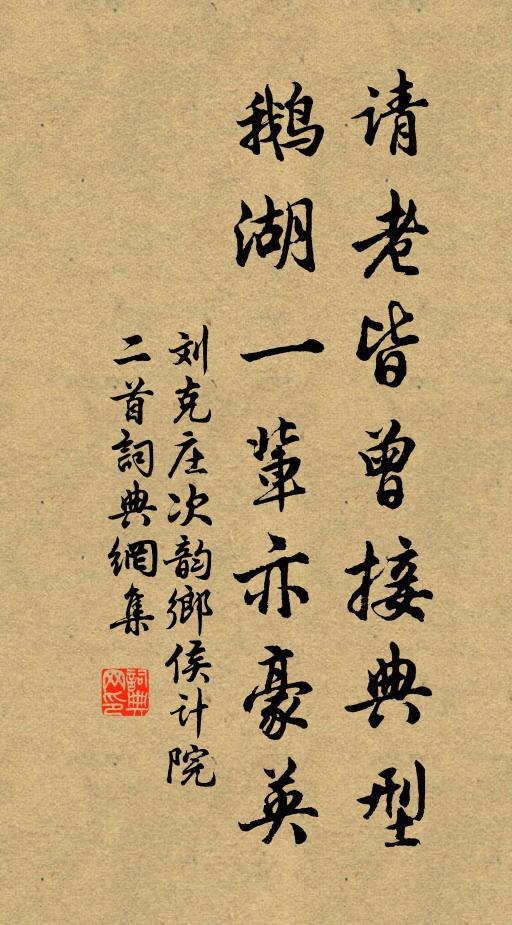 请老皆曾接典型
鹅湖一辈亦豪英
刘克庄次韵鄉侯计院
二首詞典網集
詞典网印